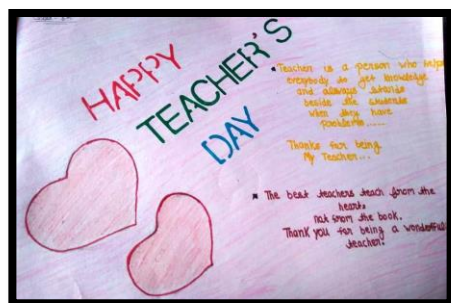 HAPPY
TEACHER'S
DAY
* Teacher is a person who helps
everybody to get knowledge
and always stands
beside the students
when they have
problems......
Thanks for being
My Teacher...
* The best teachers teach from the
heart,
not from the book.
Thank you for being a wonderful
teacher.